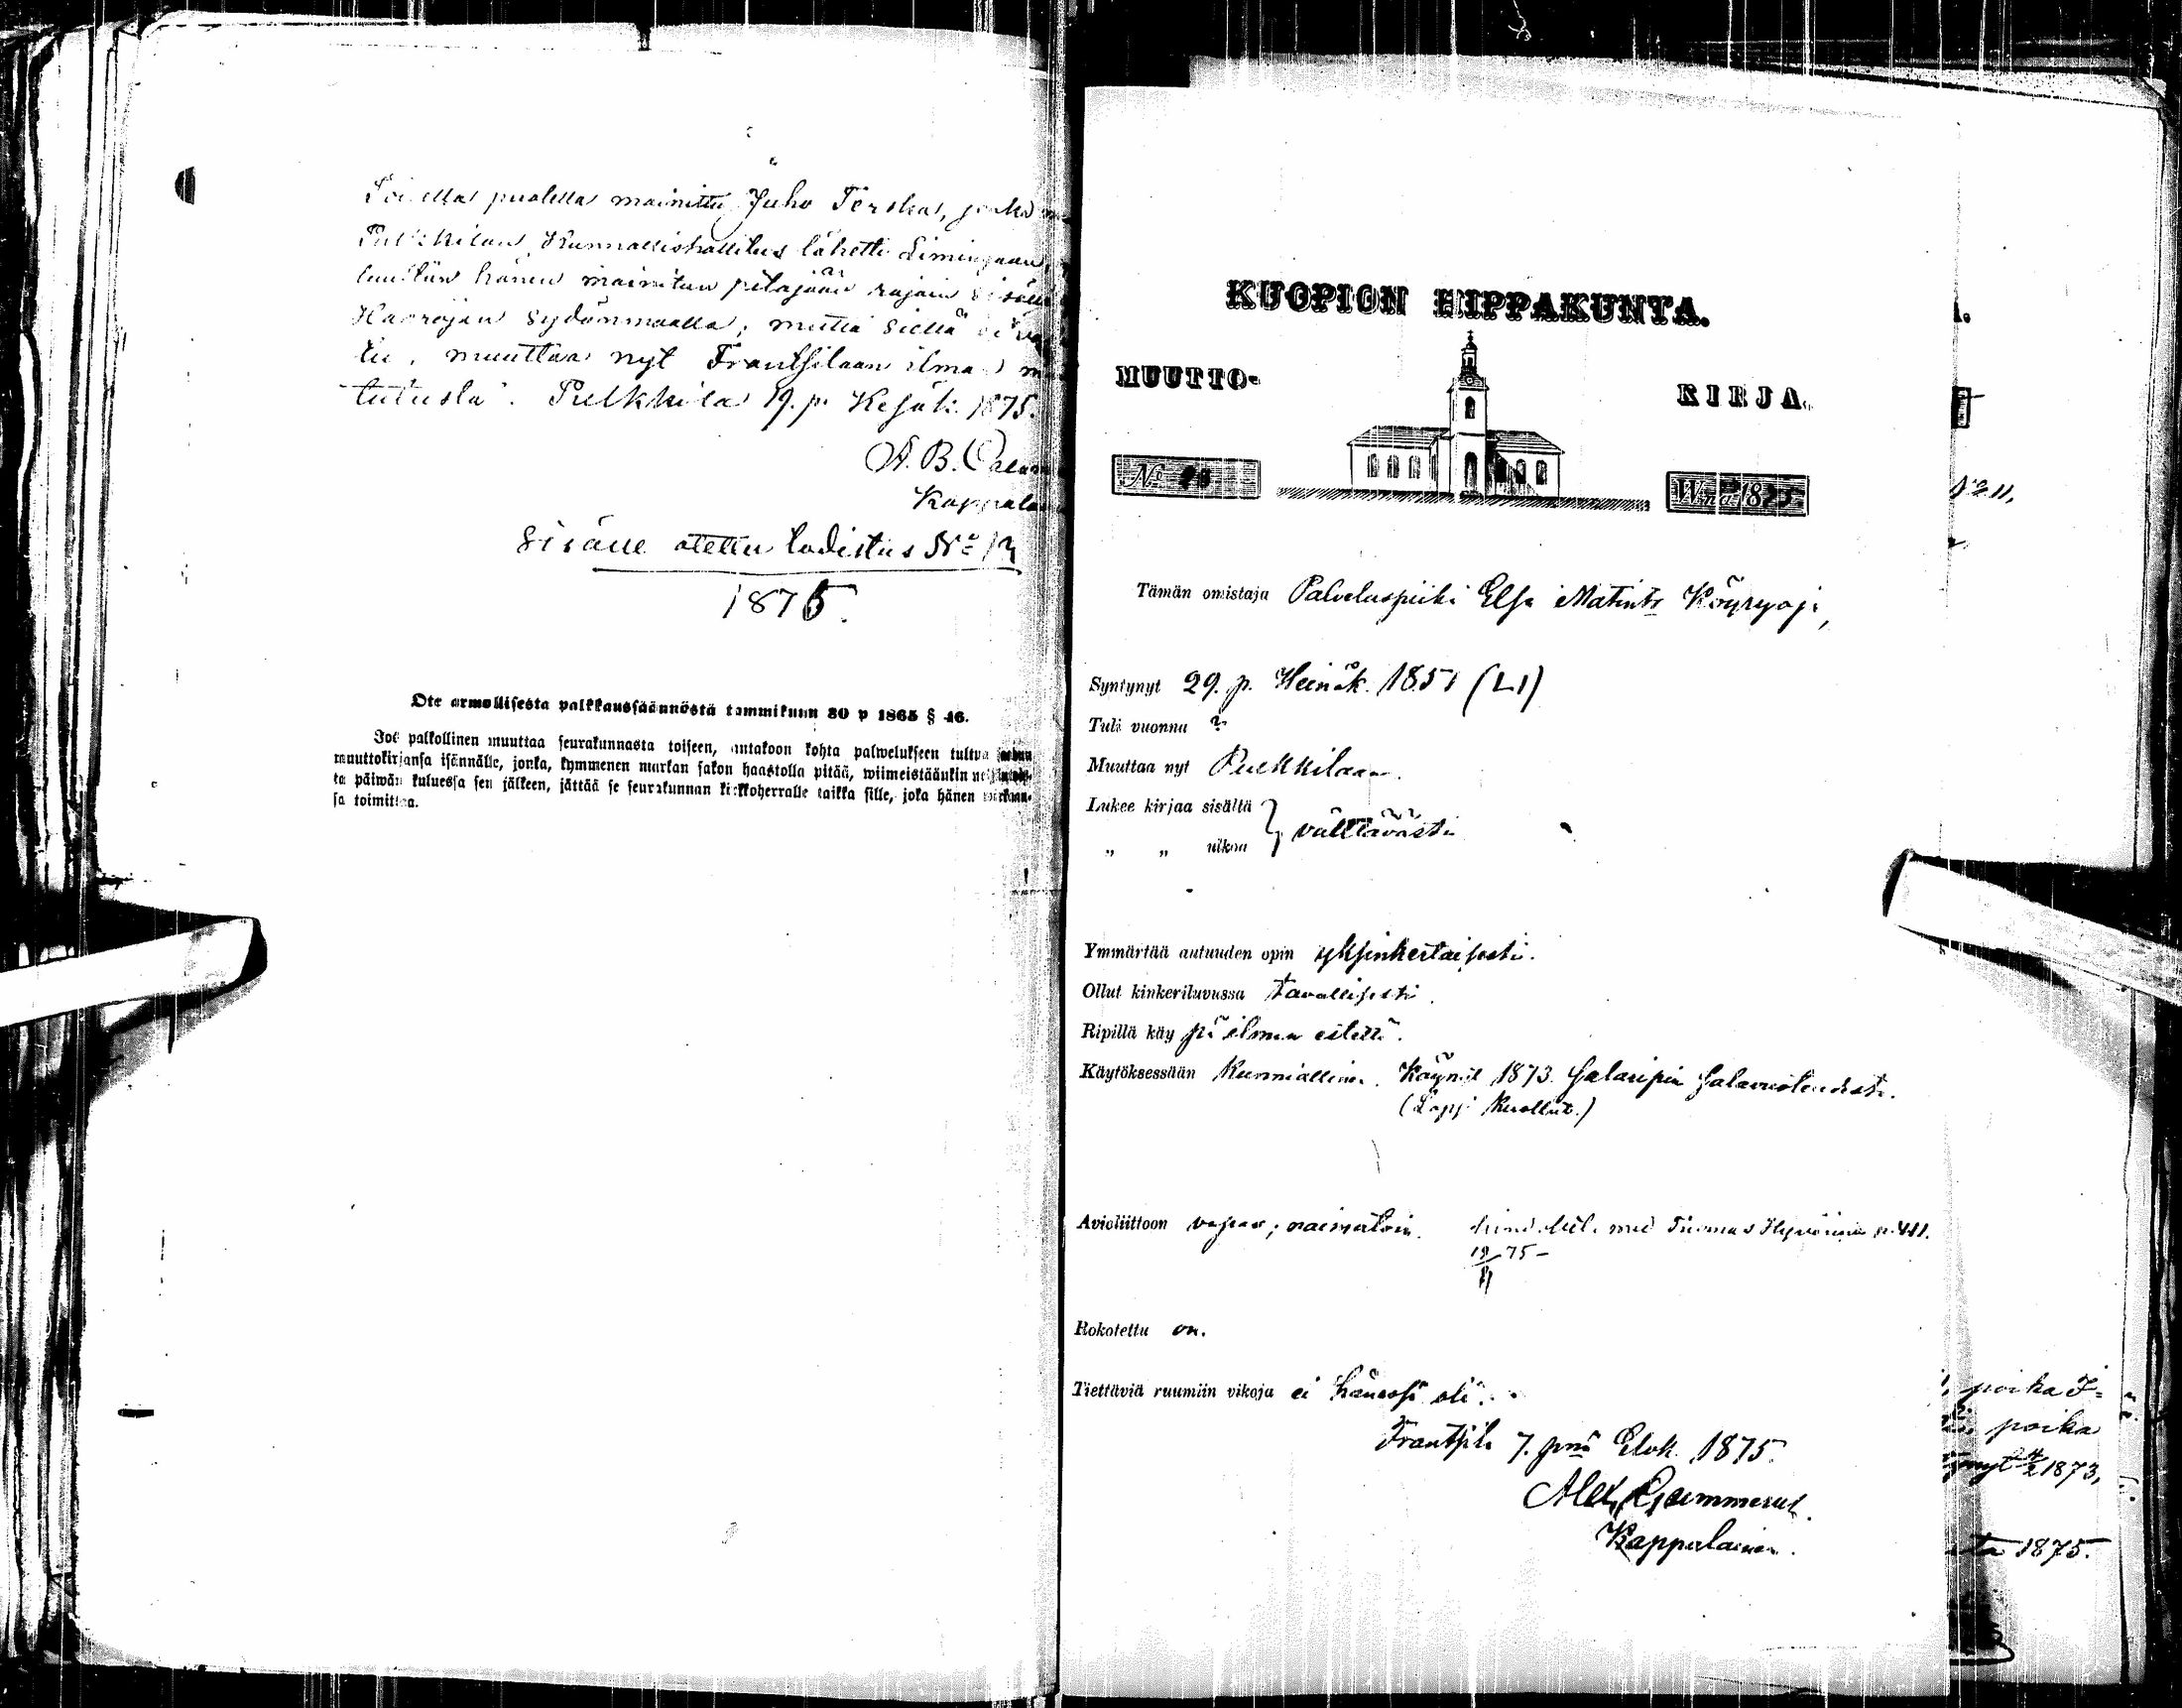 puolella mainittu Juho Terska, jonka
Pulkkilan Kunnallishallitus lähetti Limingaan,
luullen hänen mainitun pitäjään rajain sisällä
sydänmaalla; mutta siellä
muuttaa nyt Frantsilaan ilman
Pulkkila 19. p. Kesäk. 1875.
A. B.
Kappala
Sisälle otettu todistus No 13
1875.
Ote armollisesta palkkaussäännöstä tammikuun 30 p 1865 § 46.
Jos palkollinen muuttaa seurakunnasta toiseen, antakoon kohta palwelukseen tultua
muuttokirjansa isännälle, jonka, kymmenen markan sakon haastolla pitää, wiimeistäänkin
ta päiwän kuluessa sen jälkeen, jättää se seurakunnan kirkkoherralle taikka sille, joka hänen wirkaan-
sa toimittaa.
KUOPION HIPPAKUNTA.
MUUTTO-
KIRJA.
No
Wnna 1875
Tämän omistaja Palveluspiika Elsa Matintr Köyryoja,
Syntynyt 29. p. Heinäk. 1851 (LI)
Tuli vuonna ?
Muuttaa nyt Pulkkilaan.
Lukee kirjaa sisältä
„ „ ulkoa } välttävästi
Ymmärtää autuuden opin yksinkertaisesti.
Ollut kinkeriluvussa tavallisesti.
Ripillä käy ilman estettä.
Käytöksessään kunniallinen. Käynyt 1873 salaripin salavuoteudesta.
(Lapsi kuollut.)
Avioliittoon vapaa; naimatoin. med Tuomas Hyvörinen p. 441.
19/9 75-
Rokotettu on.
Tiettäviä ruumiin vikoja ei hänessä ole.
Frantsila 7. pnä Elok. 1875.
Alex.
Kappalainen.
No 11,
poika J=
poika
1873,
1875.